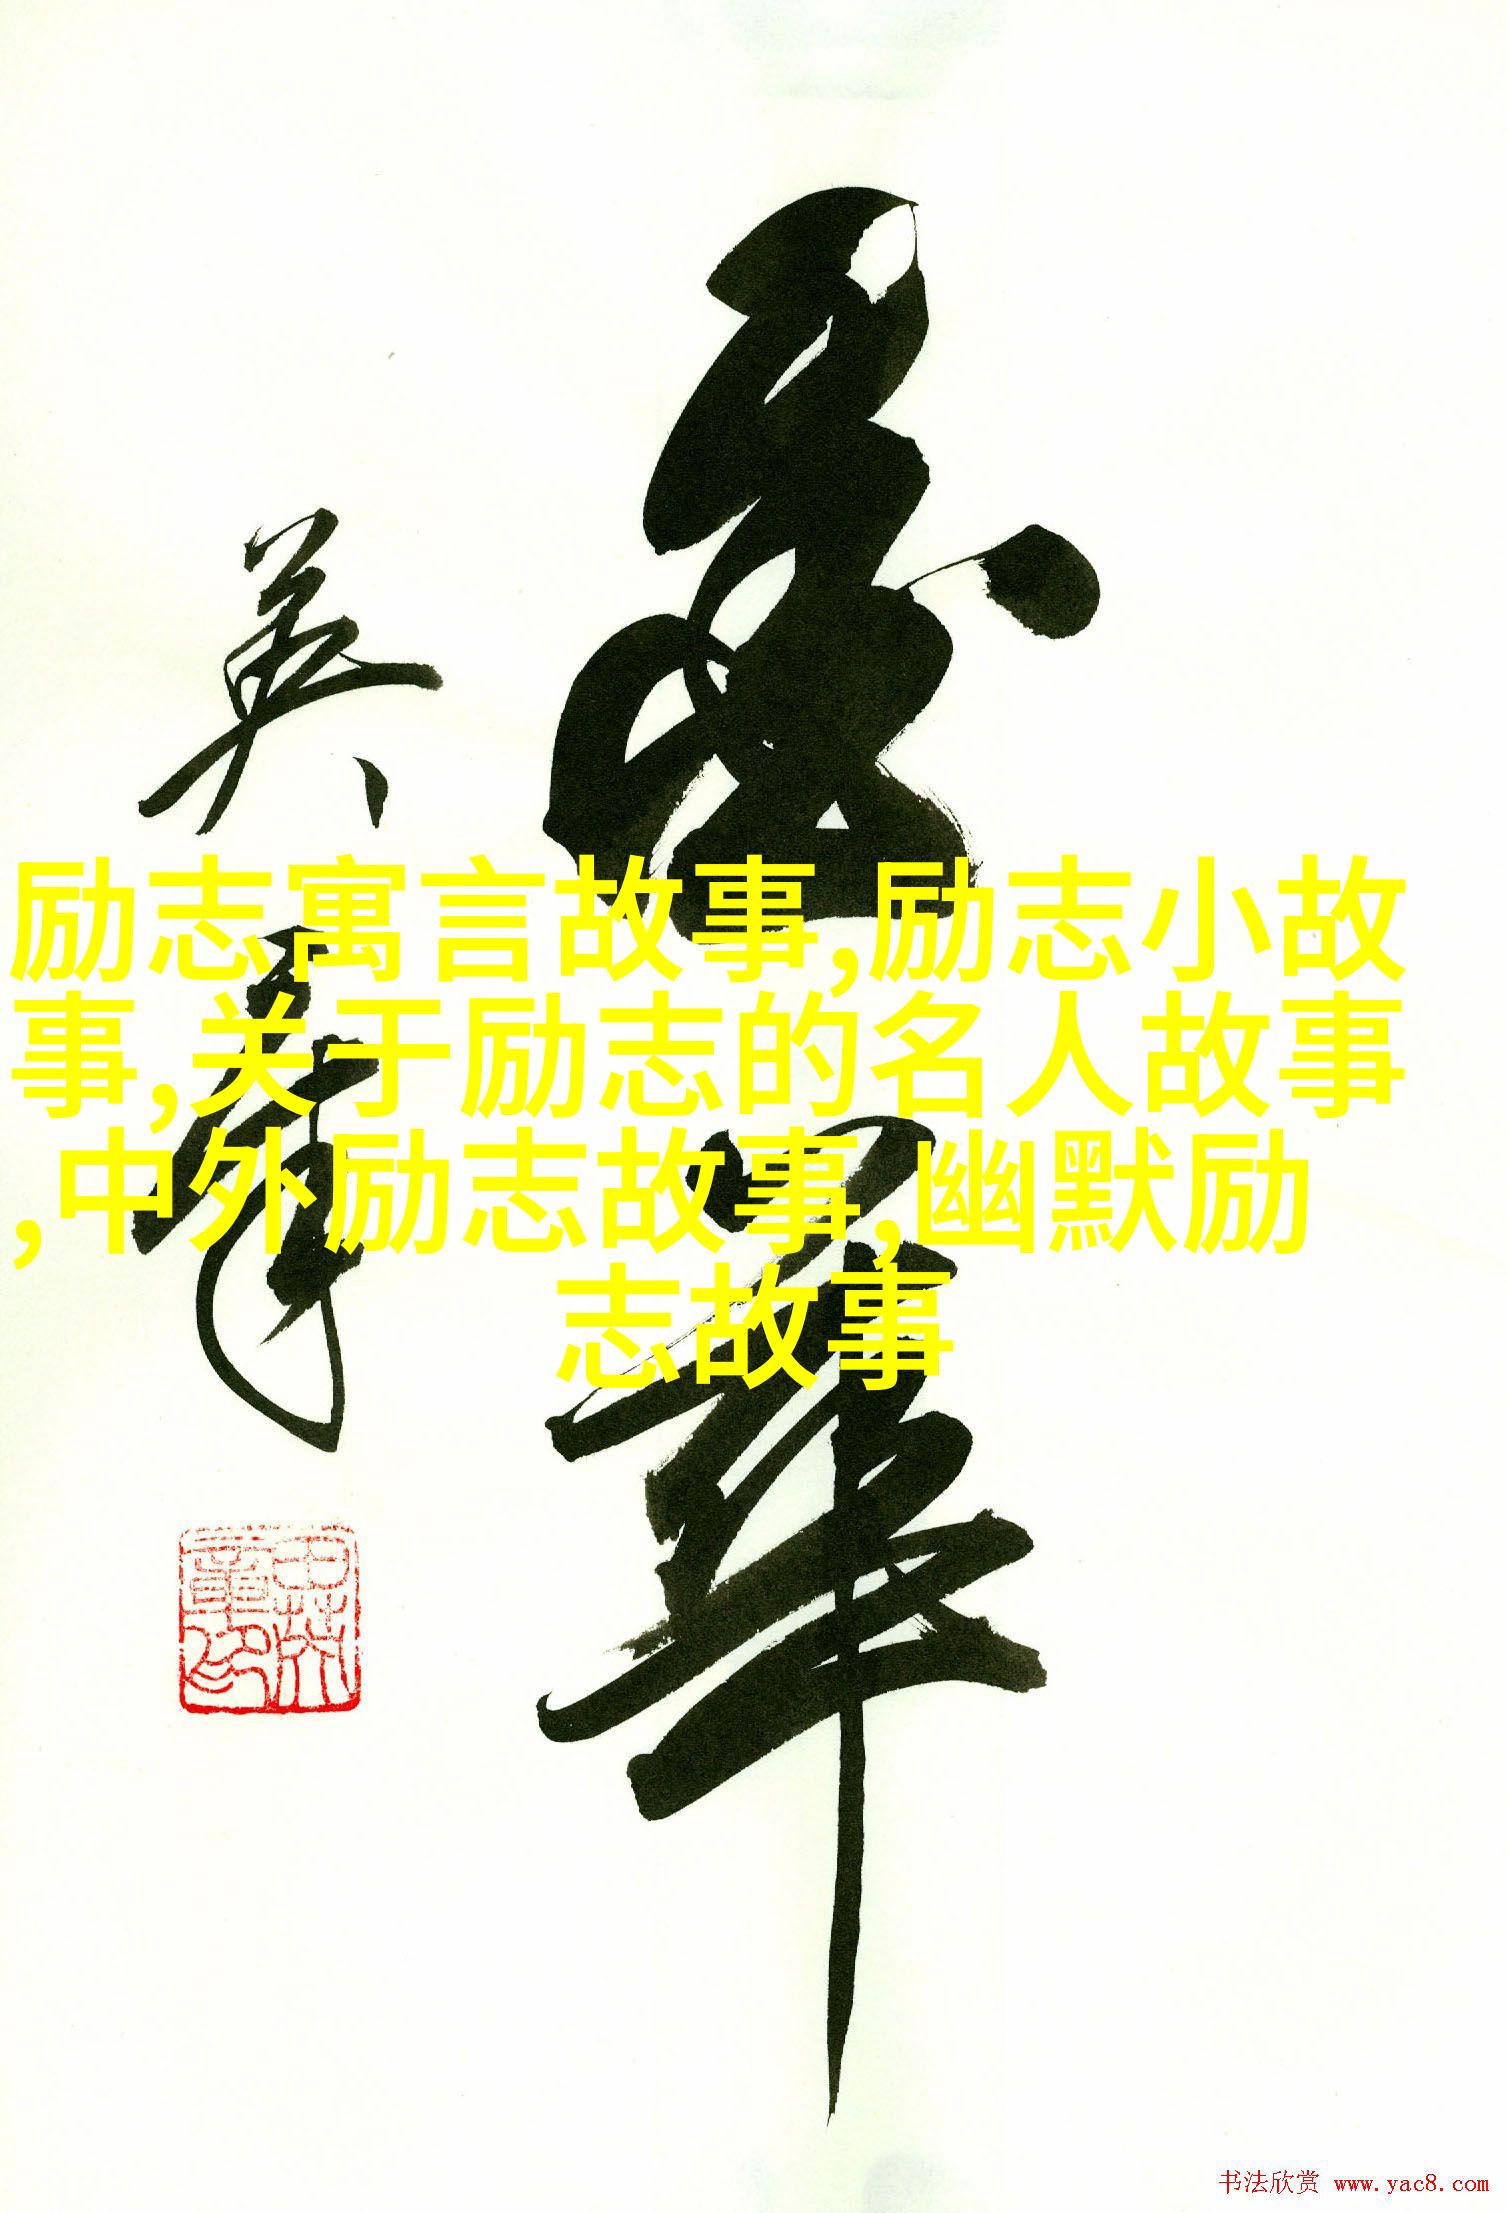 励志寓言故事,励志小故
事,关于励志的名人故事
,中外励志故事,幽默励
志故事
英
书法欣赏 www.yac8.com